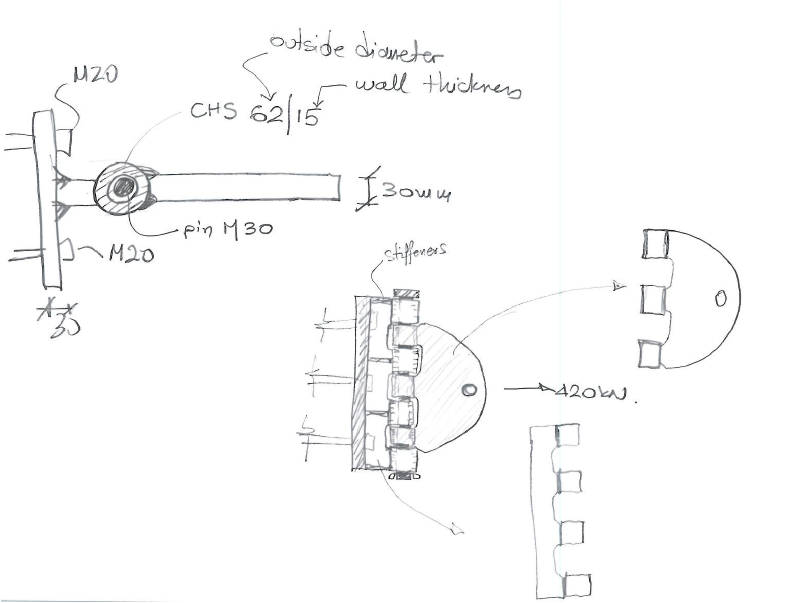 outside diameter
wall thickness
M20
CHS 62/15
30mm
pin M30
M20
30
stiffeners
420kN.